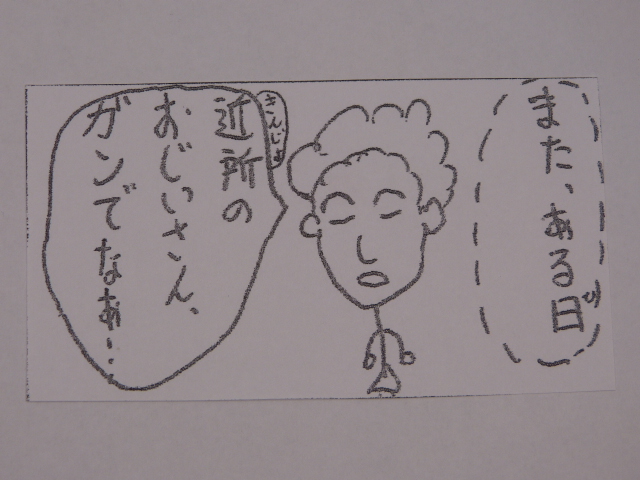 また、ある日
ひ
近所の
きんじょ
おじいさん、
ガンでなぁ…